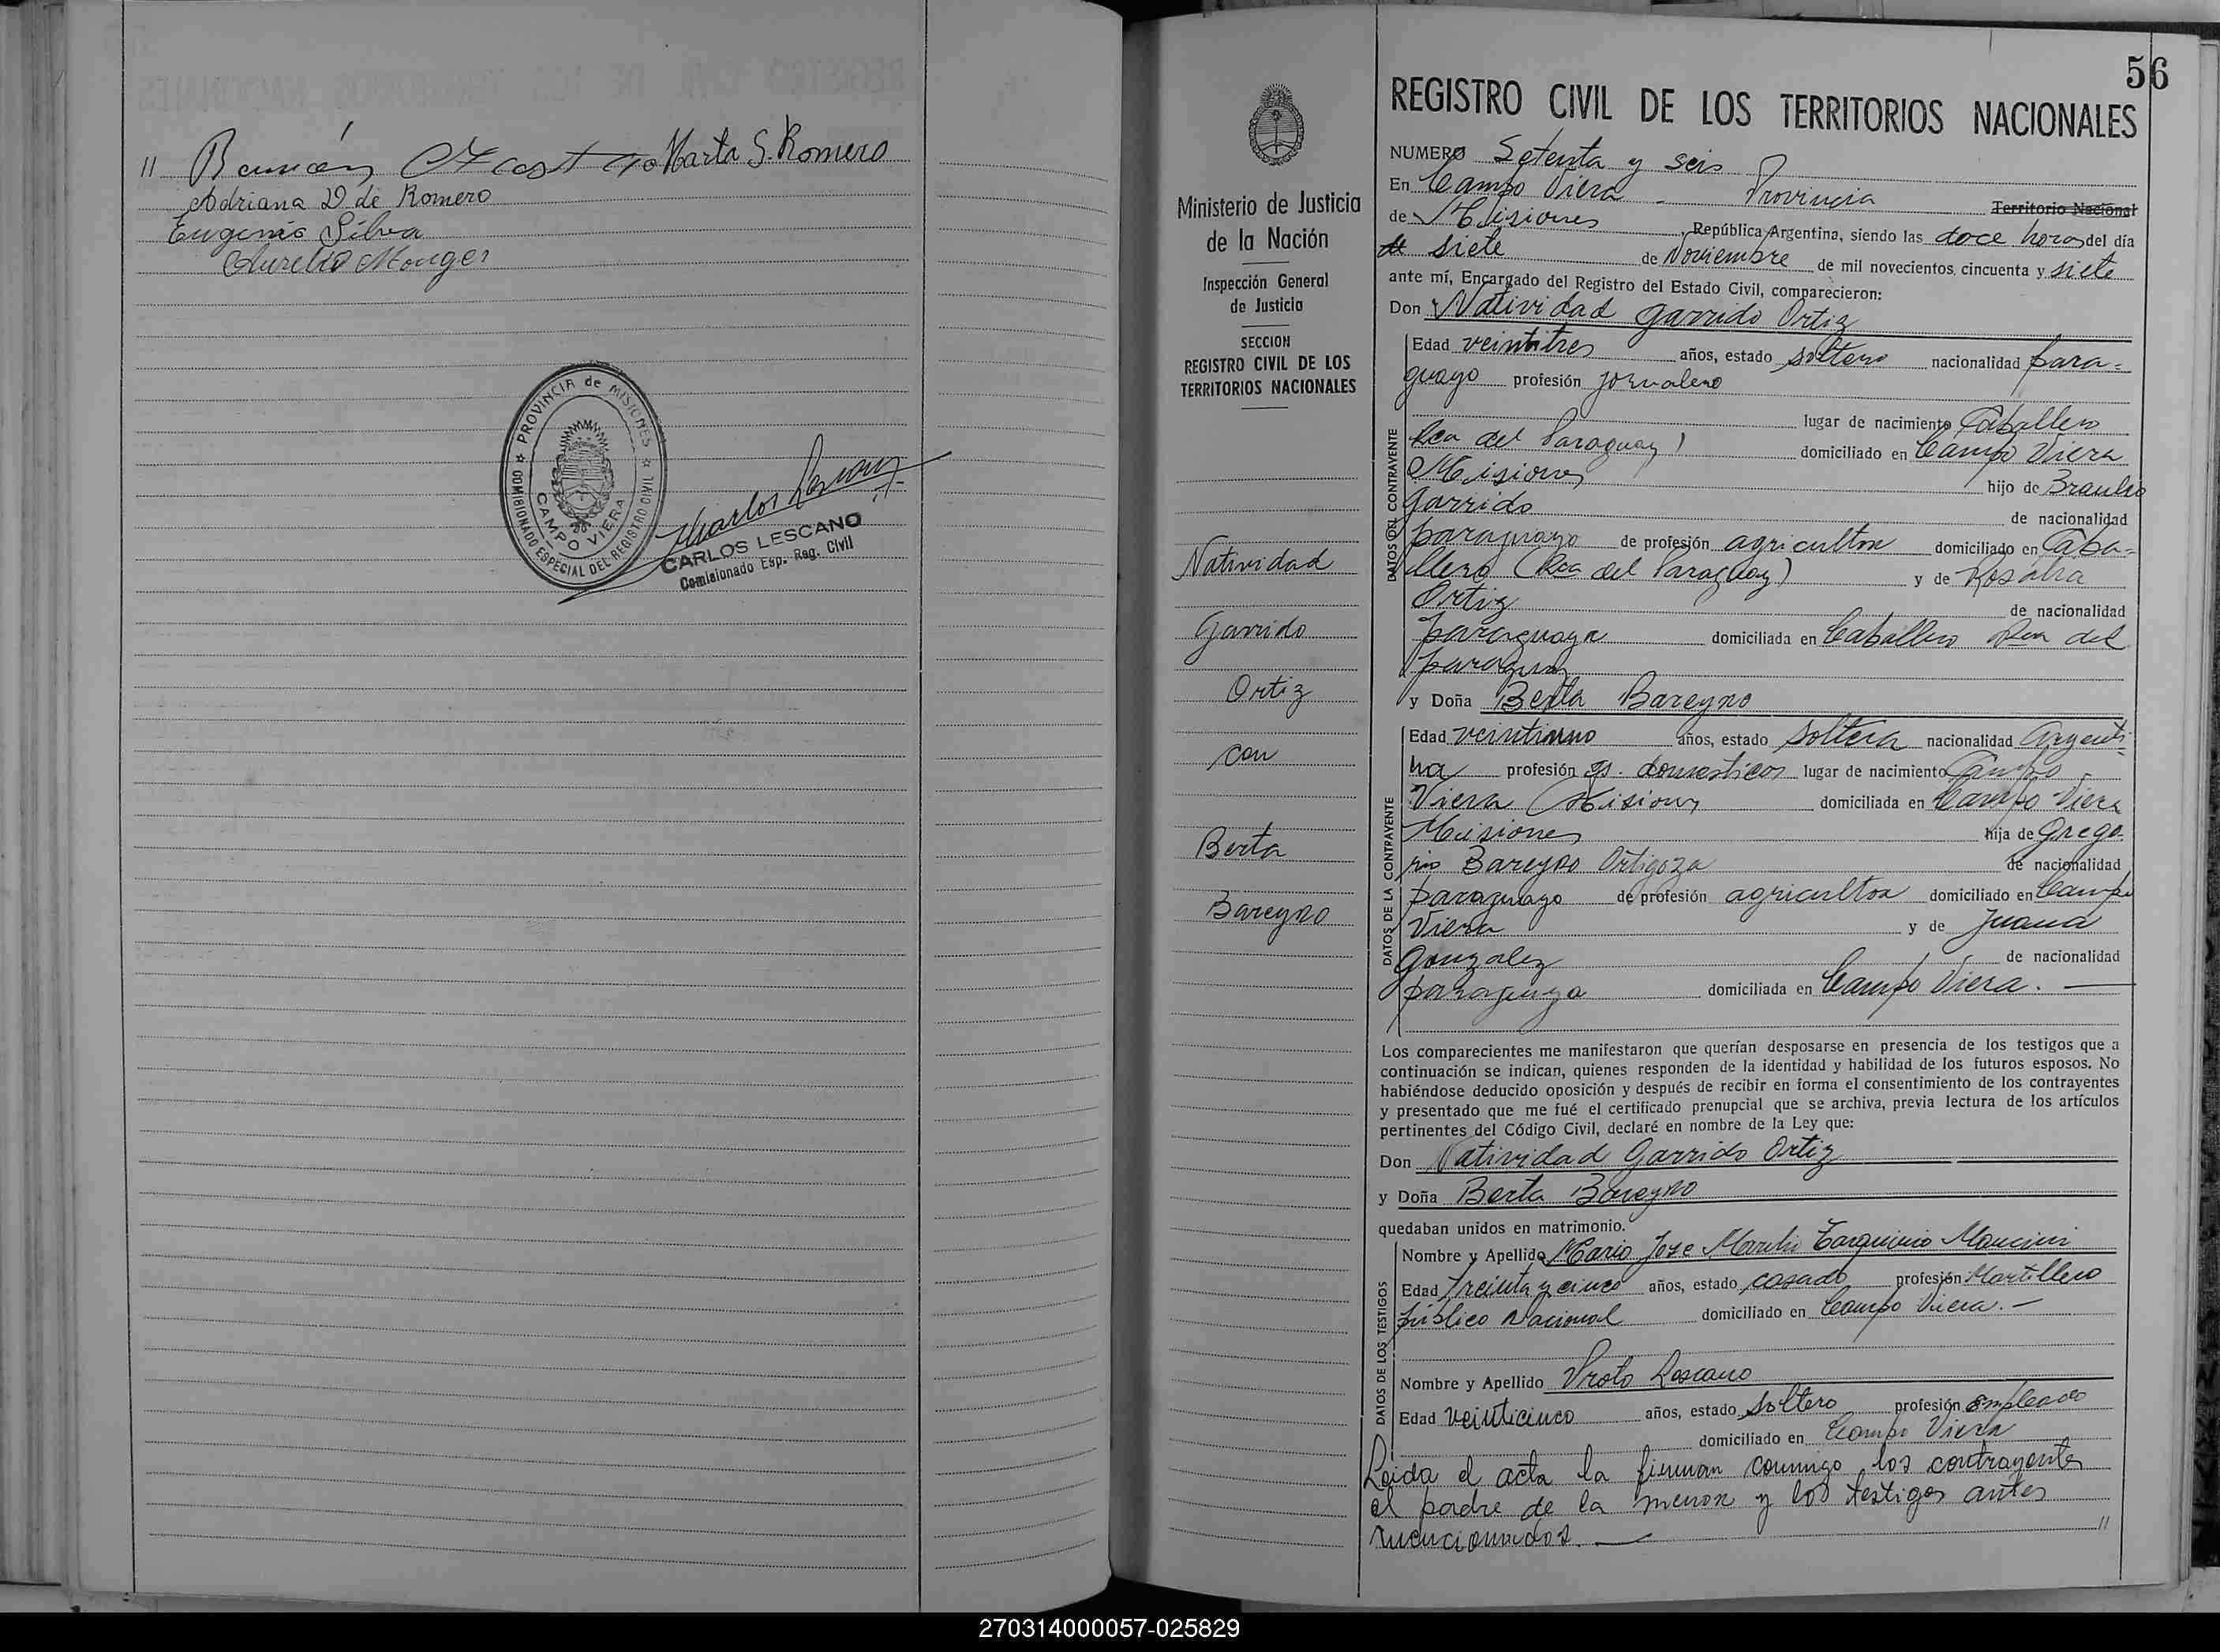 // Ramón Marta S. Romero
Adriana D de Romero
Eugenio Silva
Aurelio
PROVINCIA de MISIONES
CAMPO VIERA
COMISIONADO ESPECIAL DEL REGISTRO CIVIL
CARLOS LESCANO
Comisionado Esp. Reg. Civil
56
Ministerio de Justicia
de la Nación
Inspección General
de Justicia
SECCION
REGISTRO CIVIL DE LOS
TERRITORIOS NACIONALES
Natividad
Garrido
Ortiz
con
Berta
Bareyro
REGISTRO CIVIL DE LOS TERRITORIOS NACIONALES
NUMERO Setenta y seis
En Campo Viera - Provincia Territorio Nacional
de Misiones, República Argentina, siendo las doce horas del día
de siete de Noviembre de mil novecientos cincuenta y siete
ante mí, Encargado del Registro del Estado Civil, comparecieron:
Don Natividad Garrido Ortiz
DATOS DEL CONTRAYENTE
Edad veintitres años, estado soltero nacionalidad para-
guayo profesión jornalero
lugar de nacimiento Caballero
Rca del Paraguay) domiciliado en Campo Viera
Misiones hijo de Braulio
Garrido de nacionalidad
paraguayo de profesión agricultor domiciliado en Caba-
llero (Rca del Paraguay) y de Rosalia
Ortiz de nacionalidad
paraguaya domiciliada en Caballero Rca del
paraguay
y Doña Berta Bareyro
DATOS DE LA CONTRAYENTE
Edad veintiuno años, estado soltera nacionalidad Argenti-
na profesión qs. domesticos lugar de nacimiento Campo
Viera Misiones domiciliada en Campo Viera
Misiones hija de Grego-
rio Bareyro Ortigoza de nacionalidad
paraguayo de profesión agricultor domiciliado en Campo
Viera y de Juana
Gonzalez de nacionalidad
paraguaya domiciliada en Campo Viera.
Los comparecientes me manifestaron que querían desposarse en presencia de los testigos que a
continuación se indican, quienes responden de la identidad y habilidad de los futuros esposos. No
habiéndose deducido oposición y después de recibir en forma el consentimiento de los contrayentes
y presentado que me fué el certificado prenupcial que se archiva, previa lectura de los artículos
pertinentes del Código Civil, declaré en nombre de la Ley que:
Don Natividad Garrido Ortiz
y Doña Berta Bareyro
quedaban unidos en matrimonio.
DATOS DE LOS TESTIGOS
Nombre y Apellido Mario Jose Tarquinio Mancini
Edad Treinta y cinco años, estado casado profesión Martillero
público nacional domiciliado en Campo Viera. -
Nombre y Apellido Proto Lescano
Edad veinticinco años, estado soltero profesión empleado
domiciliado en Campo Viera
Leida el acta la firman conmigo los contrayentes
el padre de la menor y los testigos antes
mencionados. //
270314000057-025829